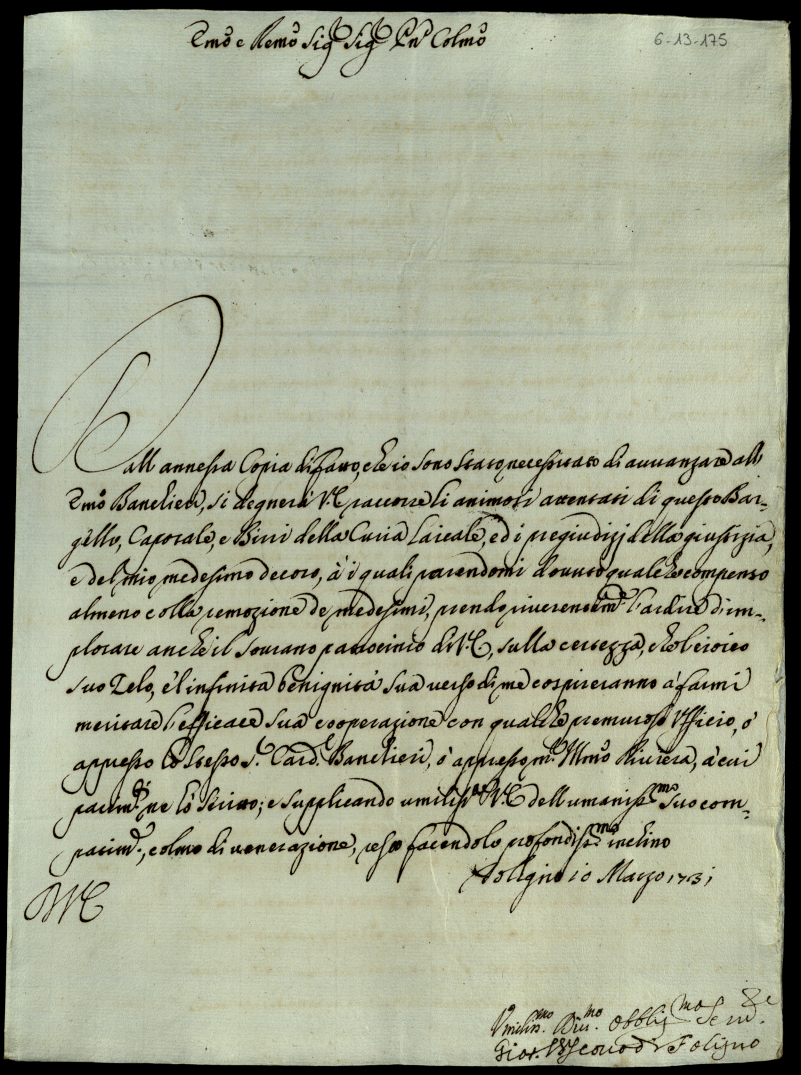 Emo e Remo Sigr Sigr Pne Colmo
6-13-175
Dall annessa Copia di fatto, che io sono stato necessitato di avvanzare all
Emo Banchieri, si degnerà V.E. raccorre li animosi attentati di questo Bar-
gello, Caporale, e Birri della Curia Laicale, ed i pregiudizj della giustizia,
e del mio medesimo decoro, à i quali parendomi dovuto qualche compenso
almeno colla remozione de medesimi, prendo riverentemte l'ardire d'im-
plorare anche il sovrano patrocinio di V.E., sulla certezza, che l'eroico
suo Zelo, e l'infinita benignità sua verso di me cospireranno à farmi
meritare l'efficace sua cooperazione con qualche premuroso Ufficio, ò
appresso lo stesso Sr Cardl Banchieri, ò appresso Mr Illmo Riviera, à cui
parimti ne hò scritto; e supplicando umilmte V.E. dell umanissmo suo com-
patimto, colmo di venerazione, resto facendole profondissmo inchino
Foligno 10 Marzo 1731
DVE
Umiliss.mo Div.mo Obblig.mo Serv.re
Gios. Vescovo di Foligno